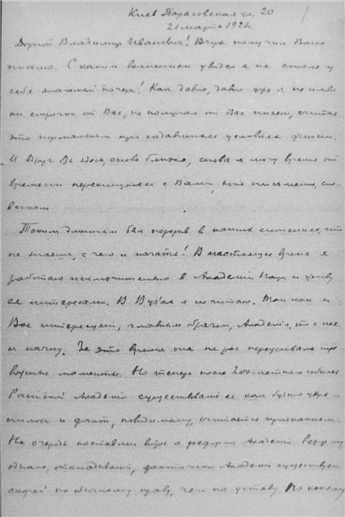 Киев Тарасовская ул. 20
21 марта 192
Дорогой Владимир Иванович! Вчера получил Ваше
письмо. С каким волнением увидел я на столе у
себя знакомый почерк! Как давно, давно уже я не имел
ни строчки от Вас, не получал от Вас писем, считая
это нормальным при создавшихся условиях жизни.
И вдруг Вы снова близко, снова я могу время от
времени перекинуться с Вами, хотя письменно, сло-
вечком.
Таким длинным был перерыв в наших сношениях, что
не знаешь, с чего и начать! В настоящее время я
работаю исключительно в Академии Наук и живу
ее интересами. В Вузах я не читаю. Так как и
Вас интересует, главным образом, Академия, то с нее
и начну. За это время она не раз переживала тре-
вожные моменты. Но теперь после 200-летнего юбилея
Российской Академии существование ее как будто упро-
чилось и факт, повидимому, считается признанным.
На очередь поставлен вопрос о реформе Академии. Реформу
однако, откладывают, фактически Академия существует
скорей по обычному праву, чем по уставу. По новому